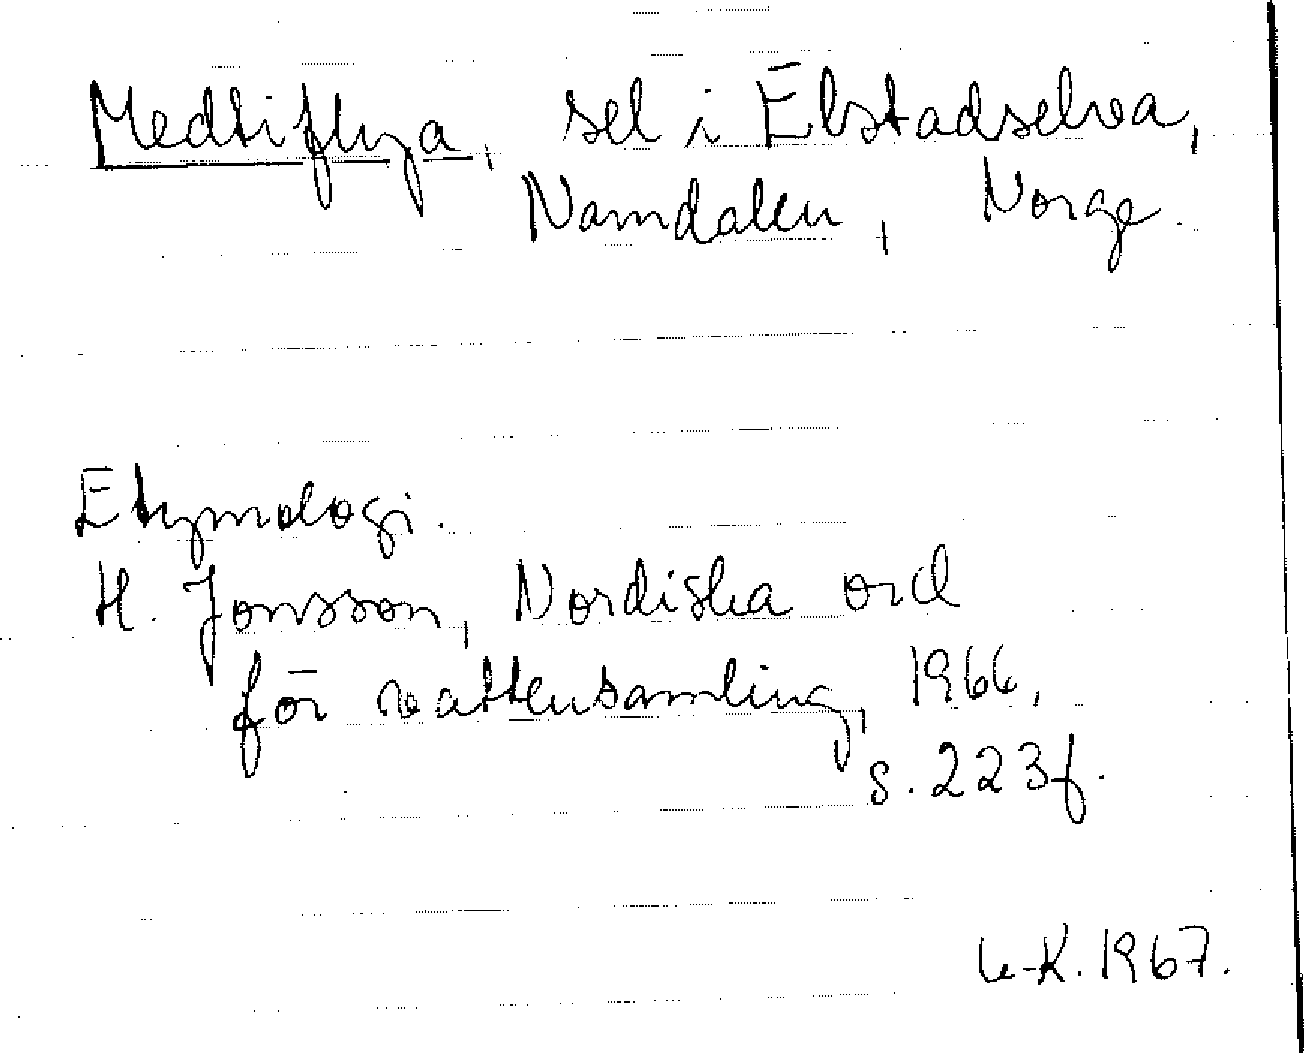 Medtiflya, sel i Elstadselva,
Namdalen, Norge.
Etymologi.
H. Jonsson, Nordiska ord
för vattensamling, 1966,
s. 223f.
K. 1967.